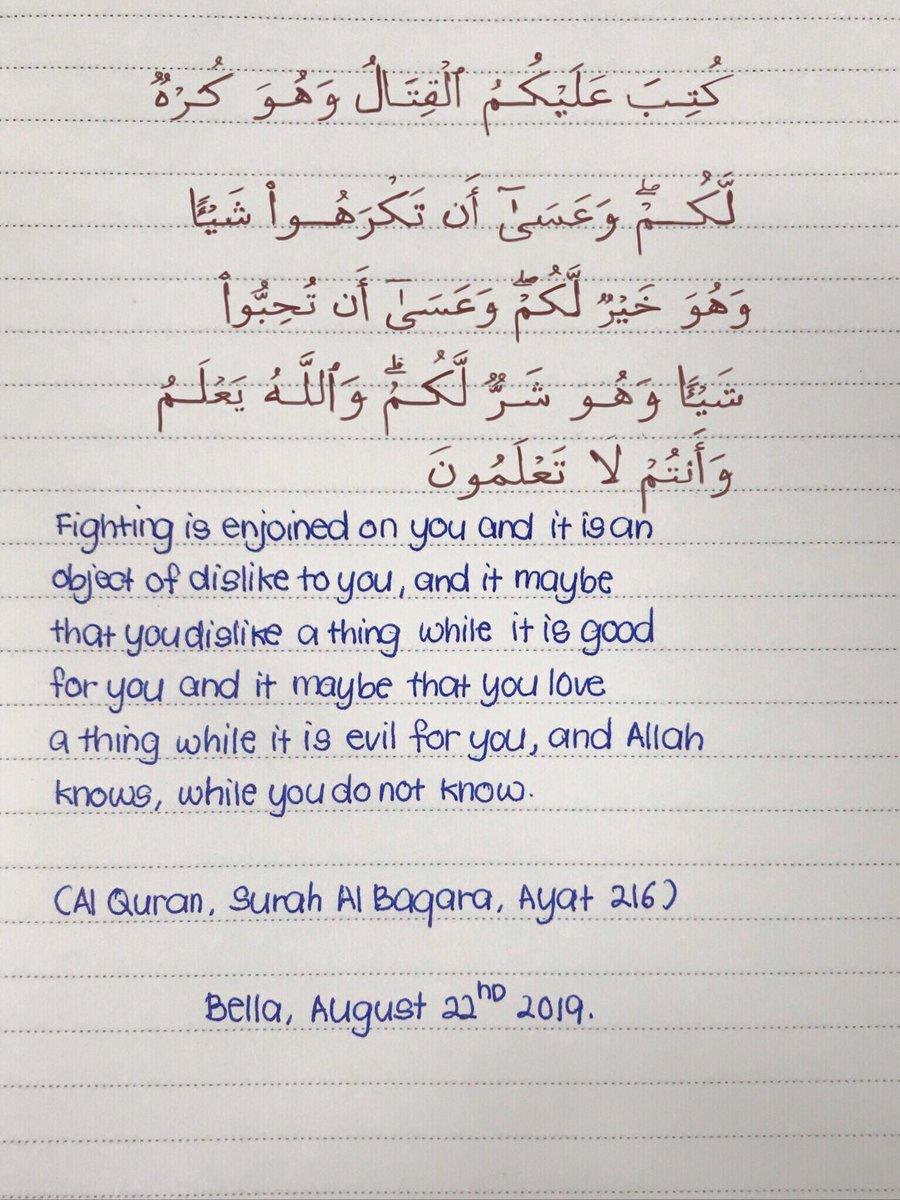 كُتِبَ عَلَيْكُمُ ٱلْقِتَالُ وَهُوَ كُرْهٌ
لَّكُمْ ۖ وَعَسَىٰٓ أَن تَكْرَهُوا۟ شَيْـًٔا
وَهُوَ خَيْرٌ لَّكُمْ ۖ وَعَسَىٰٓ أَن تُحِبُّوا۟
شَيْـًٔا وَهُوَ شَرٌّ لَّكُمْ ۗ وَٱللَّهُ يَعْلَمُ
وَأَنتُمْ لَا تَعْلَمُونَ
Fighting is enjoined on you and it is an
object of dislike to you, and it maybe
that you dislike a thing while it is good
for you and it maybe that you love
a thing while it is evil for you, and Allah
knows, while you do not know.
(Al Quran, Surah Al Baqara, Ayat 216)
Bella, August 22nd 2019.